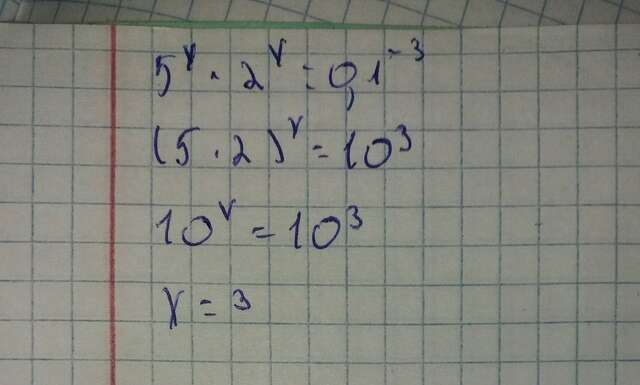 5^x · 2^x = 0,1^-3
(5 · 2)^x = 10^3
10^x = 10^3
x = 3